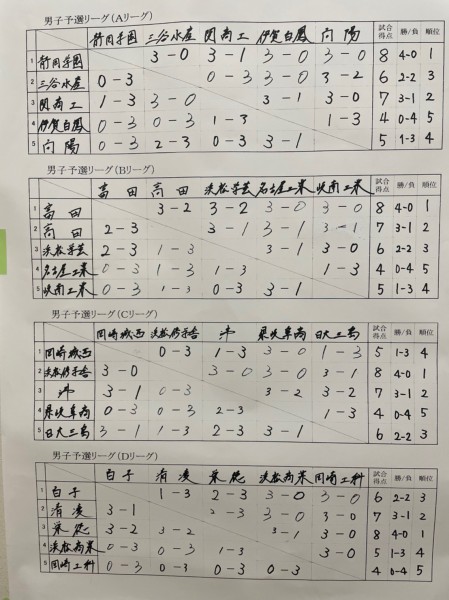 男子予選リーグ(Aリーグ)
静岡学園 三谷水産 関商工 伊賀白鳳 向陽 試合得点 勝/負 順位
1 静岡学園 3-0 3-1 3-0 3-0 8 4-0 1
2 三谷水産 0-3 0-3 3-0 3-2 6 2-2 3
3 関商工 1-3 3-0 3-1 3-0 7 3-1 2
4 伊賀白鳳 0-3 0-3 1-3 1-3 4 0-4 5
5 向陽 0-3 2-3 0-3 3-1 5 1-3 4
男子予選リーグ(Bリーグ)
高田 浜松学芸 名古屋工業 岐南工業 試合得点 勝/負 順位
1 高田 3-2 3-2 3-0 3-0 8 4-0 1
2 2-3 3-1 3-1 3-1 7 3-1 2
3 浜松学芸 2-3 1-3 3-1 3-0 6 2-2 3
4 名古屋工業 0-3 1-3 1-3 1-3 4 0-4 5
5 岐南工業 0-3 1-3 0-3 3-1 5 1-3 4
男子予選リーグ(Cリーグ)
岡崎城西 浜松修学舎 県岐阜商 日大三島 試合得点 勝/負 順位
1 岡崎城西 0-3 1-3 3-0 1-3 5 1-3 4
2 浜松修学舎 3-0 3-0 3-0 3-1 8 4-0 1
3 3-1 0-3 3-2 3-2 7 3-1 2
4 県岐阜商 0-3 0-3 2-3 1-3 4 0-4 5
5 日大三島 3-1 1-3 2-3 3-1 6 2-2 3
男子予選リーグ(Dリーグ)
白子 清凌 栄徳 浜松商業 岡崎工科 試合得点 勝/負 順位
1 白子 1-3 2-3 3-0 3-0 6 2-2 3
2 清凌 3-1 2-3 3-0 3-0 7 3-1 2
3 栄徳 3-2 3-2 3-1 3-0 8 4-0 1
4 浜松商業 0-3 0-3 1-3 3-0 5 1-3 4
5 岡崎工科 0-3 0-3 0-3 0-3 4 0-4 5